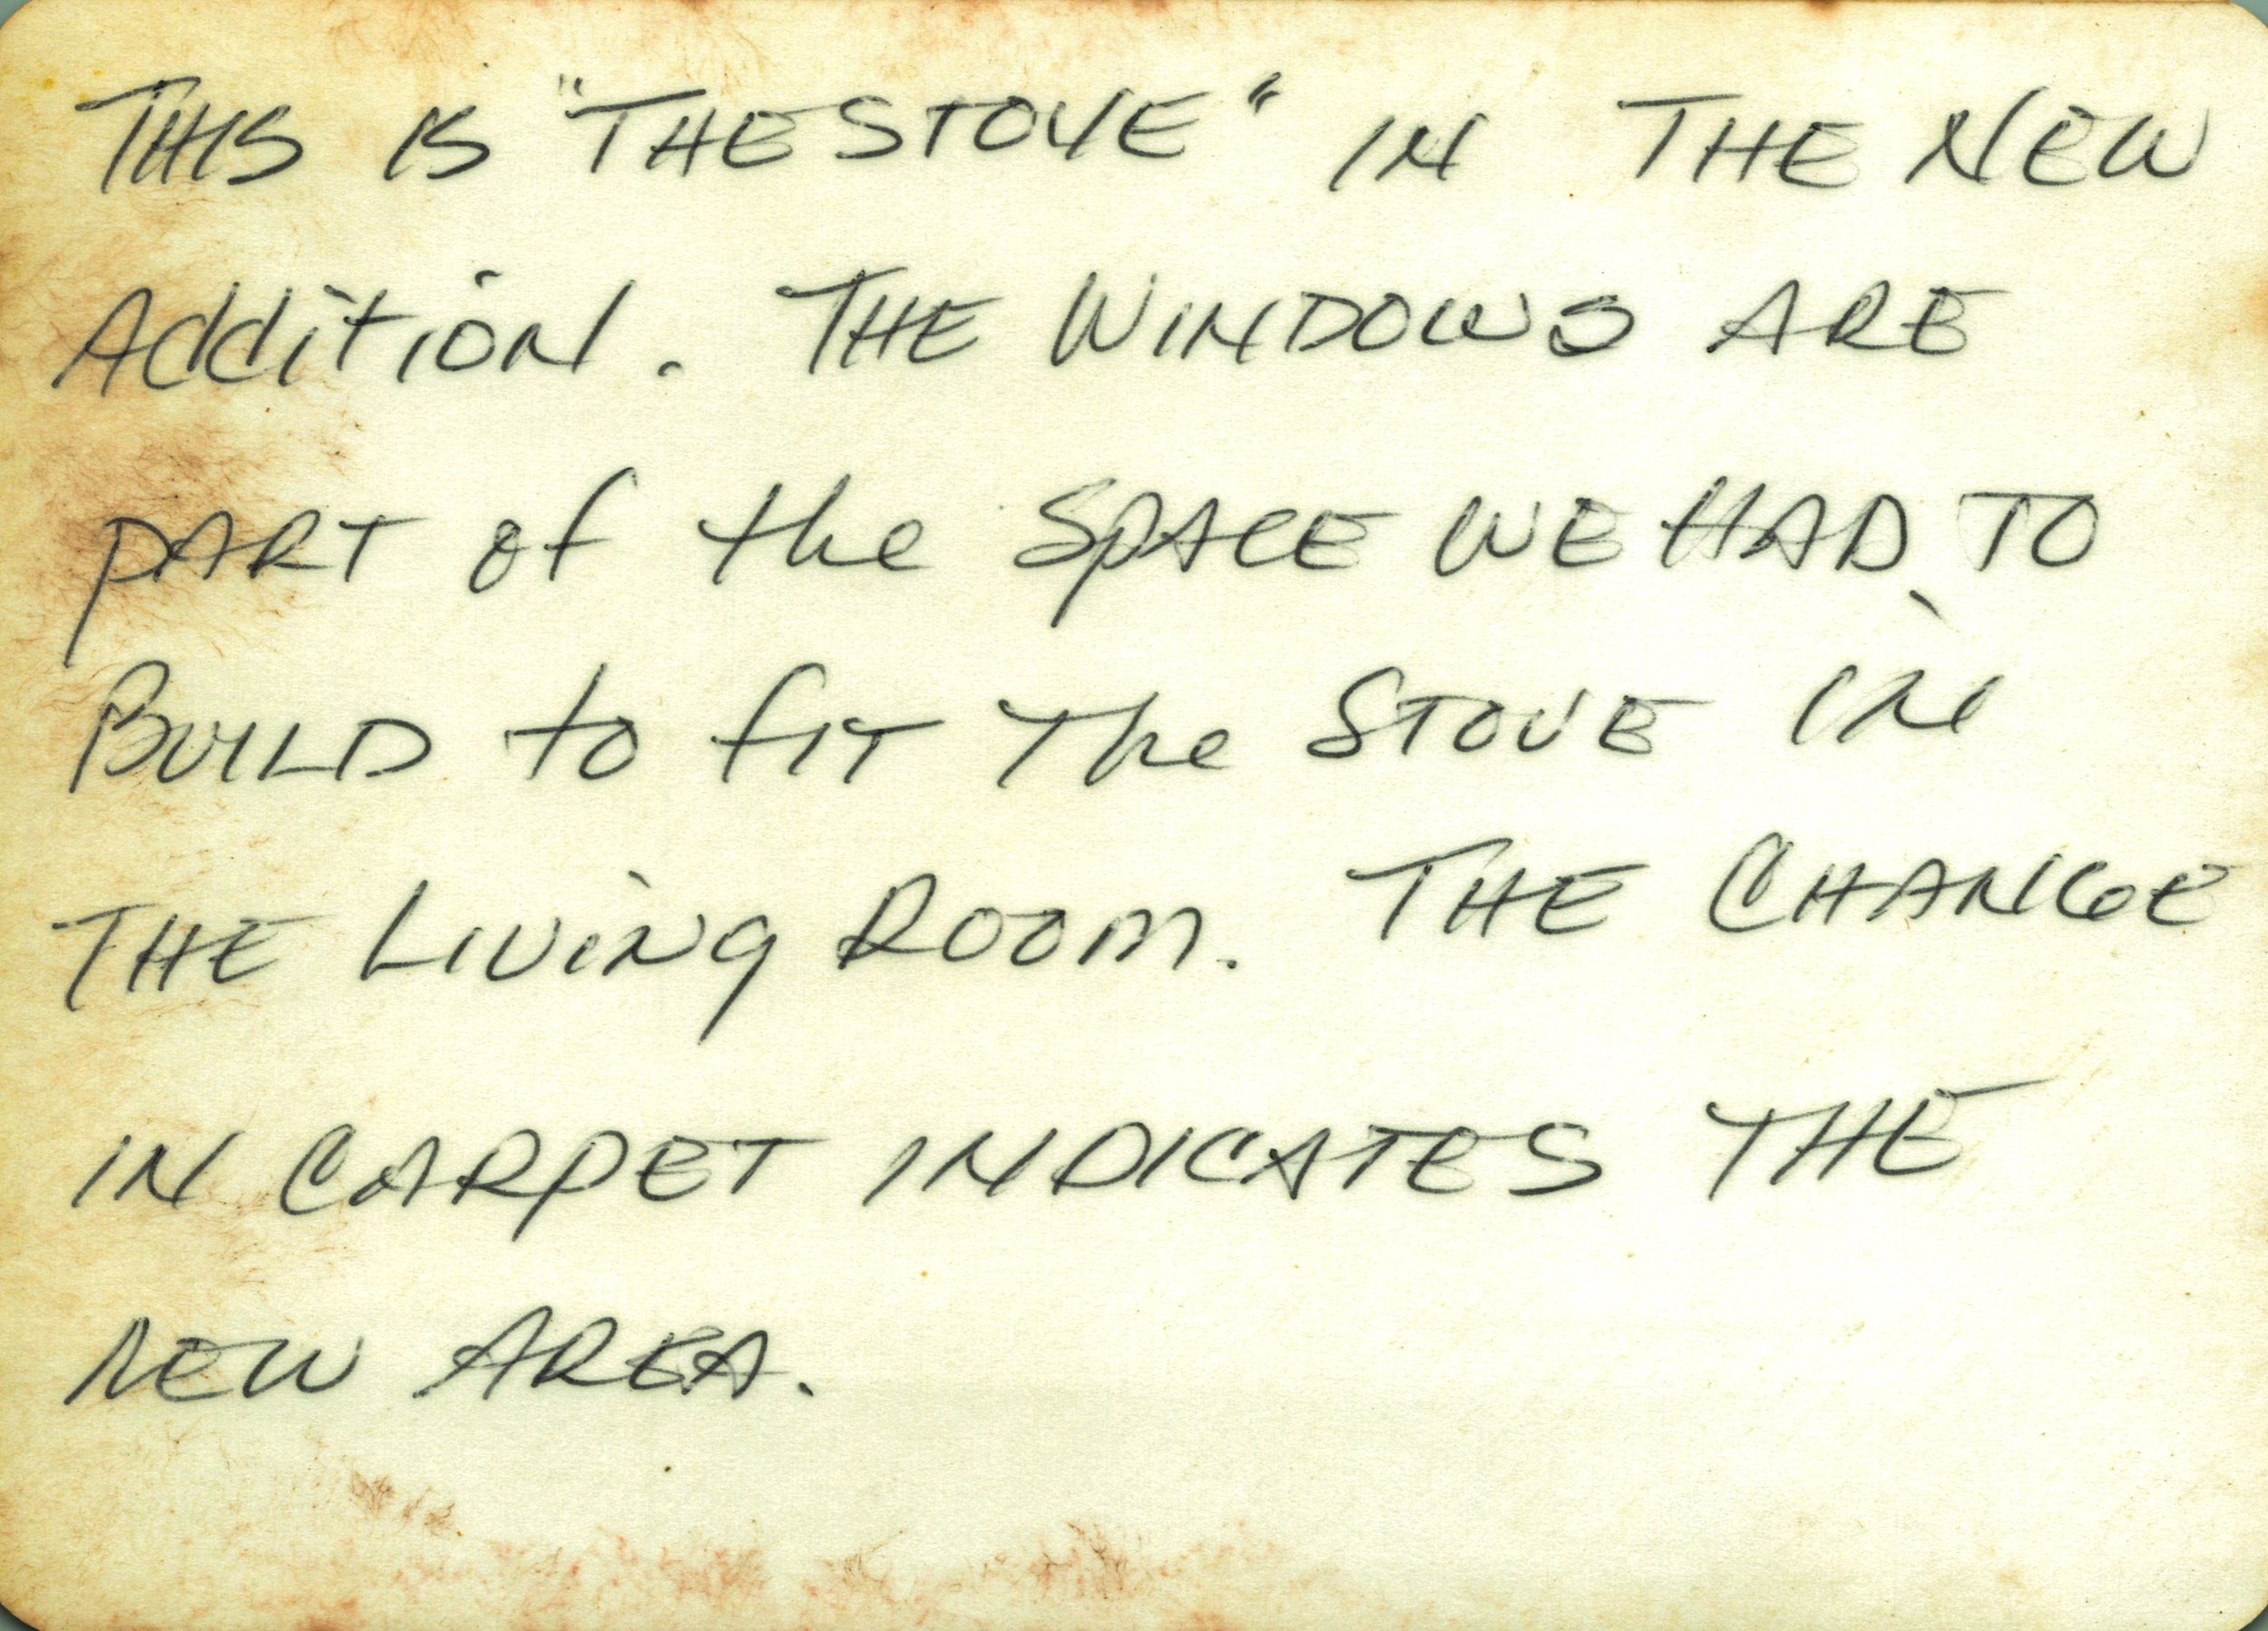 THIS IS "THE STOVE" IN THE NEW
Addition. THE WINDOWS ARE
PART of the SPACE WE HAD TO
BUILD to fIT The STOVE IN
THE LIVING ROOM. THE CHANGE
IN CARPET INDICATES THE
NEW AREA.